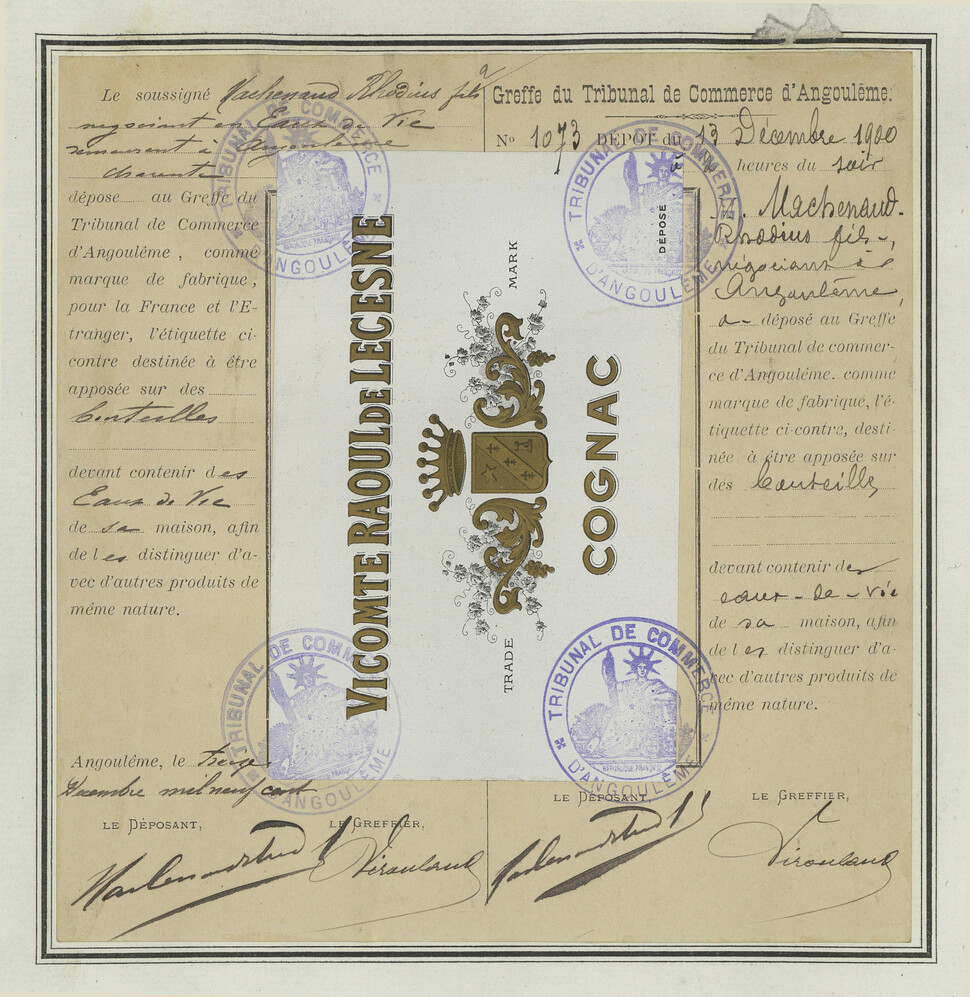 Le soussigné Machenaud Rhodius fils
negociant en Eaux de Vie
demeurant à Angoulême
charente
dépose au Greffe du
Tribunal de Commerce
d'Angoulême, comme
marque de fabrique,
pour la France et l'E-
tranger, l'étiquette ci-
contre destinée à être
apposée sur des
bouteilles
devant contenir des
Eaux de Vie
de sa maison, afin
de les distinguer d'a-
vec d'autres produits de
même nature.
Angoulême, le treize
Décembre mil neuf cent
LE DÉPOSANT, LE GREFFIER,
Virouland
VICOMTE RAOUL DE LECESNE
TRADE MARK
COGNAC
DÉPOSÉ
Greffe du Tribunal de Commerce d'Angoulême.
No 1073 DÉPOT du 13 Décembre 1900
heures du soir
M. Machenaud-
Rhodius fils,
négociant à
Angoulême,
a déposé au Greffe
du Tribunal de commer-
ce d'Angoulême. comme
marque de fabrique, l'é-
tiquette ci-contre, desti-
née à être apposée sur
des bouteilles
devant contenir des
eaux-de-vie
de sa maison, afin
de les distinguer d'a-
vec d'autres produits de
même nature.
LE DÉPOSANT, LE GREFFIER,
Virouland
TRIBUNAL DE COMMERCE D'ANGOULÊME
TRIBUNAL DE COMMERCE D'ANGOULÊME
TRIBUNAL DE COMMERCE D'ANGOULÊME
TRIBUNAL DE COMMERCE D'ANGOULÊME